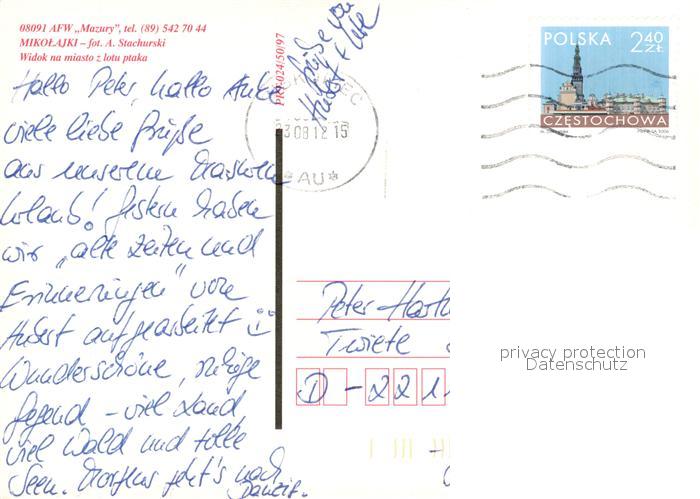 08091 AFW „Mazury”, tel. (89) 542 70 44
MIKOŁAJKI – fot. A. Stachurski
Widok na miasto z lotu ptaka
PRK 024/50/97
Hallo Peter, hallo Anke
viele liebe Grüße
aus unserem Masuren
Urlaub! Gestern haben
wir „alte Zeiten und
Erinnerungen" von
Hubert aufgearbeitet
Wunderschöne, ruhige
Gegend – viel Land,
viel Wald und tolle
Seen. Morgens geht's nach
Danzig.
Grüße von
Hubert + Ute
AU
POLSKA 2,40 ZŁ
CZĘSTOCHOWA
Peter Hart
Twiete
D - 221
privacy protection
Datenschutz